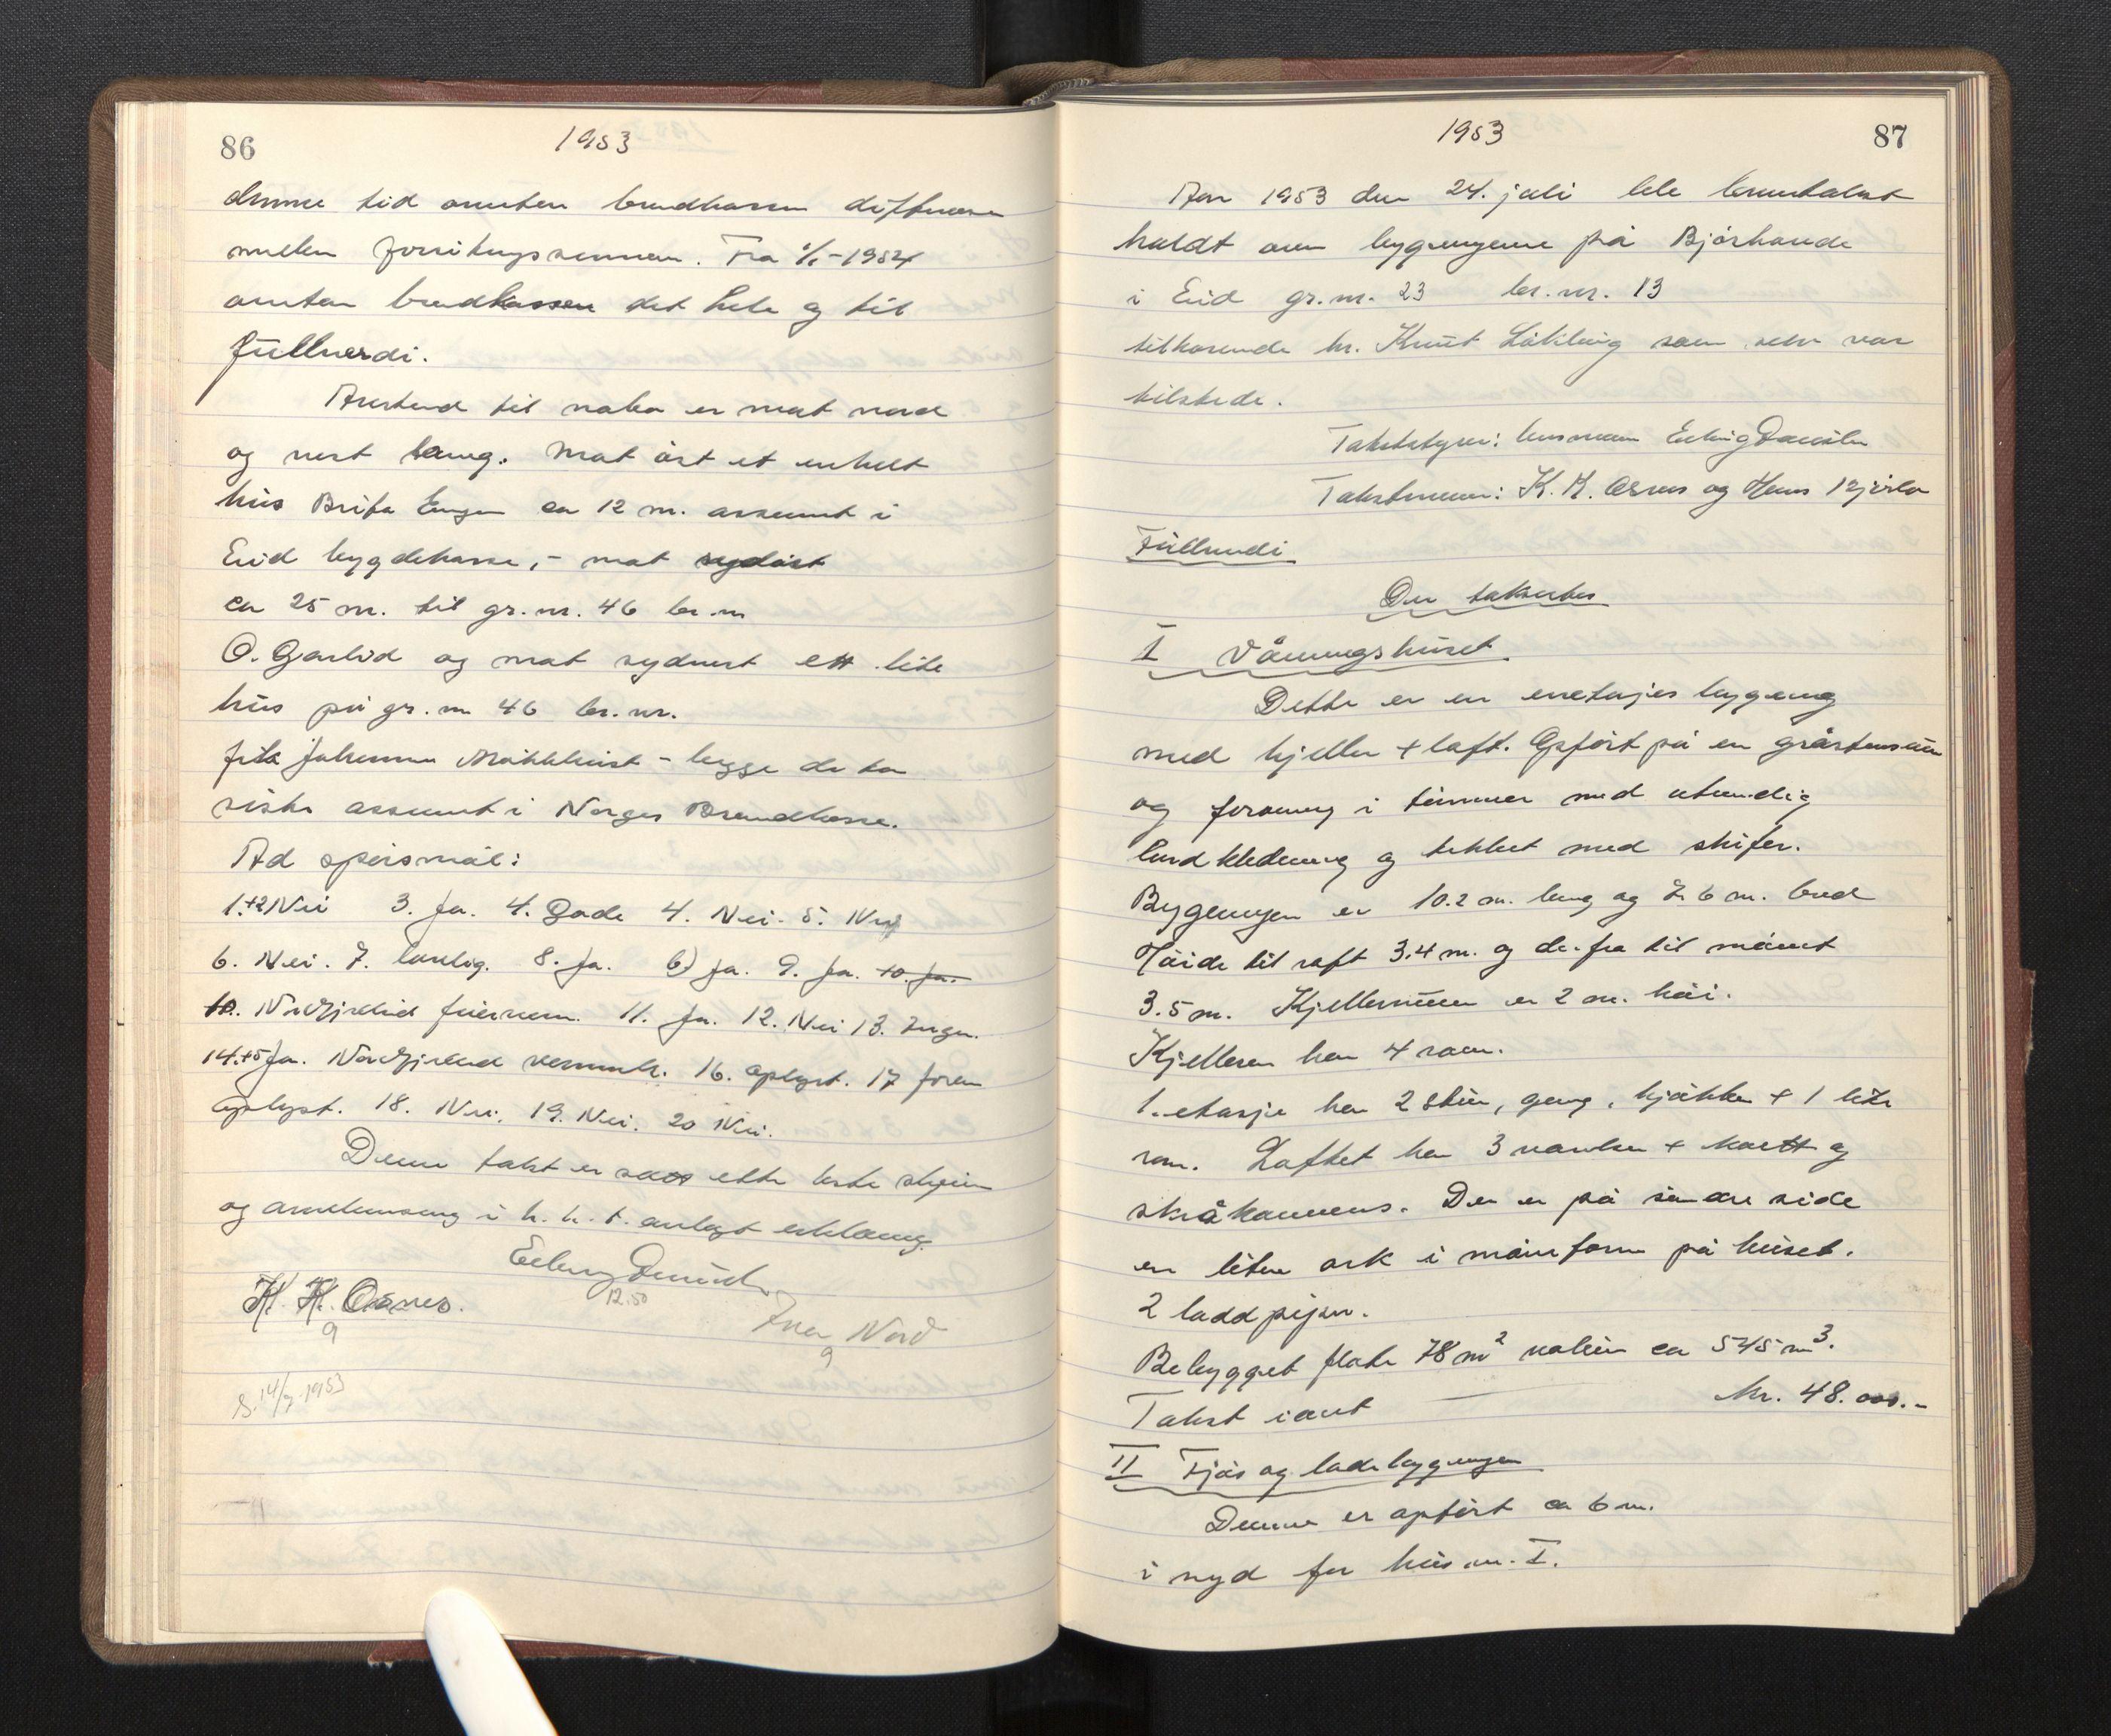 86
1953
denne tid overtar brandkassen differansen
mellem forsikringssummen. Fra 1/1-1954
overtar brandkassen det hele og til
fullverdi.
Avstand til nabo er mot nord
og vest lang. Mot øst et enkelt
hus ca 12 m. assurert i
Eid bygdekasse, - mot sydøst
ca 25 m. til gr. nr. 46 br. nr
O. Garlid og mot sydvest ett lite
hus på gr. nr 46 br. nr.
- begge de to
siste assurert i Norges Brandkasse.
Ad spørsmål:
1.+2 Nei 3. Ja. 4. Gode 4. Nei. 5. Nei
6. Nei. 7. Lovlig. 8. Ja. b) Ja. 9. Ja. 10. Ja.
10. Nordfjordeid feiervesen. 11. Ja. 12. Nei 13. Ingen.
14.+5 Ja. Nordfjordeid vassverk. 16. Oplyst. 17 foran
oplyst. 18. Nei. 19. Nei. 20 Nei.
Denne takst er satt etter beste skjønn
og overbevisning i h. h. t. avlagt erklæring.
K. K. Osnes.
12.50
Nord
9
9
S. 14/7-1953
1953
87
Aar 1953 den 24. juli ble branntakst
holdt over bygningene på Bjørhovde
i Eid gr. nr. 23 br. nr. 13
tilhørende hr. Knut Løkling som selv var
tilstede.
Takstbestyrer: lensmann Erling
Takstmenn: K. K. Osnes og Hans
Fullverdi
Der takseres
I Våningshuset
Dette er en enetasjes bygning
med kjeller + loft. Opført på en gråstensmur
og forøvrig i tømmer med utvendig
bordkledning og tekket med skifer.
Bygningen er 10.2 m. lang og 7.6 m. bred
Høide til raft 3.4 m. og derfra til mønet
3.5 m. Kjellermuren er 2 m. høi.
Kjelleren har 4 rom.
1. etasje har 2 stuer, gang, kjøkken + 1 lite
rom. Loftet har 3 værelser + kott og
skråkammers. Der er på søndre side
en liten ark i møneform på huset.
2 tadd piper.
Bebygget flate 78 m² volum ca 545 m³.
Takst ialt kr. 48.000.-
II Fjøs og ladebygningen
Denne er opført ca 6 m.
i syd for hus nr. I.